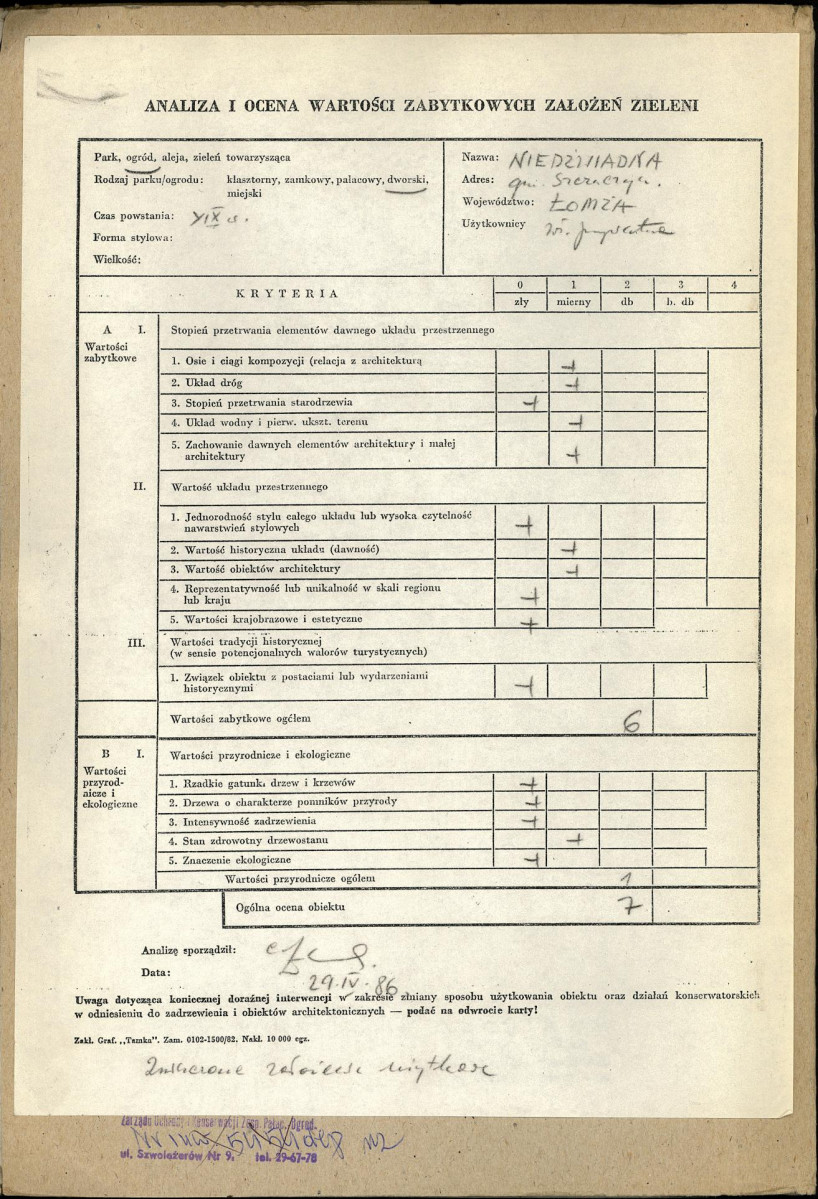 ANALIZA I OCENA WARTOŚCI ZABYTKOWYCH ZAŁOŻEŃ ZIELENI
Park, ogród, aleja, zieleń towarzysząca
Rodzaj parku/ogrodu: klasztorny, zamkowy, pałacowy, dworski,
miejski
Czas powstania: XIX w.
Forma stylowa:
Wielkość:
Nazwa: NIEDŹWIADNA
Adres: gm. Szczuczyn.
Województwo: ŁOMŻA
Użytkownicy
KRYTERIA
0 1 2 3 4
zły mierny db b. db
A I. Stopień przetrwania elementów dawnego układu przestrzennego
Wartości
zabytkowe
1. Osie i ciągi kompozycji (relacja z architekturą +
2. Układ dróg +
3. Stopień przetrwania starodrzewia +
4. Układ wodny i pierw. ukszt. terenu +
5. Zachowanie dawnych elementów architektury i małej
architektury +
II. Wartość układu przestrzennego
1. Jednorodność stylu całego układu lub wysoka czytelność
nawarstwień stylowych +
2. Wartość historyczna układu (dawność) +
3. Wartość obiektów architektury +
4. Reprezentatywność lub unikalność w skali regionu
lub kraju +
5. Wartości krajobrazowe i estetyczne +
III. Wartości tradycji historycznej
(w sensie potencjonalnych walorów turystycznych)
1. Związek obiektu z postaciami lub wydarzeniami
historycznymi +
Wartości zabytkowe ogółem 6
B I. Wartości przyrodnicze i ekologiczne
Wartości
przyrod-
nicze i
ekologiczne
1. Rzadkie gatunki drzew i krzewów +
2. Drzewa o charakterze pomników przyrody +
3. Intensywność zadrzewienia +
4. Stan zdrowotny drzewostanu +
5. Znaczenie ekologiczne +
Wartości przyrodnicze ogółem 1
Ogólna ocena obiektu 7
Analizę sporządził:
Data: 29.IV.86
Uwaga dotycząca koniecznej doraźnej interwencji w zakresie zmiany sposobu użytkowania obiektu oraz działań konserwatorskich
w odniesieniu do zadrzewienia i obiektów architektonicznych — podać na odwrocie karty!
Zakł. Graf. „Tamka". Zam. 0102-1500/82. Nakł. 10 000 egz.
Zarządu Ochrony i Konserwacji Zesp. Pałac. Ogrod.
ul. Szwoleżerów Nr 9, tel. 29-67-78